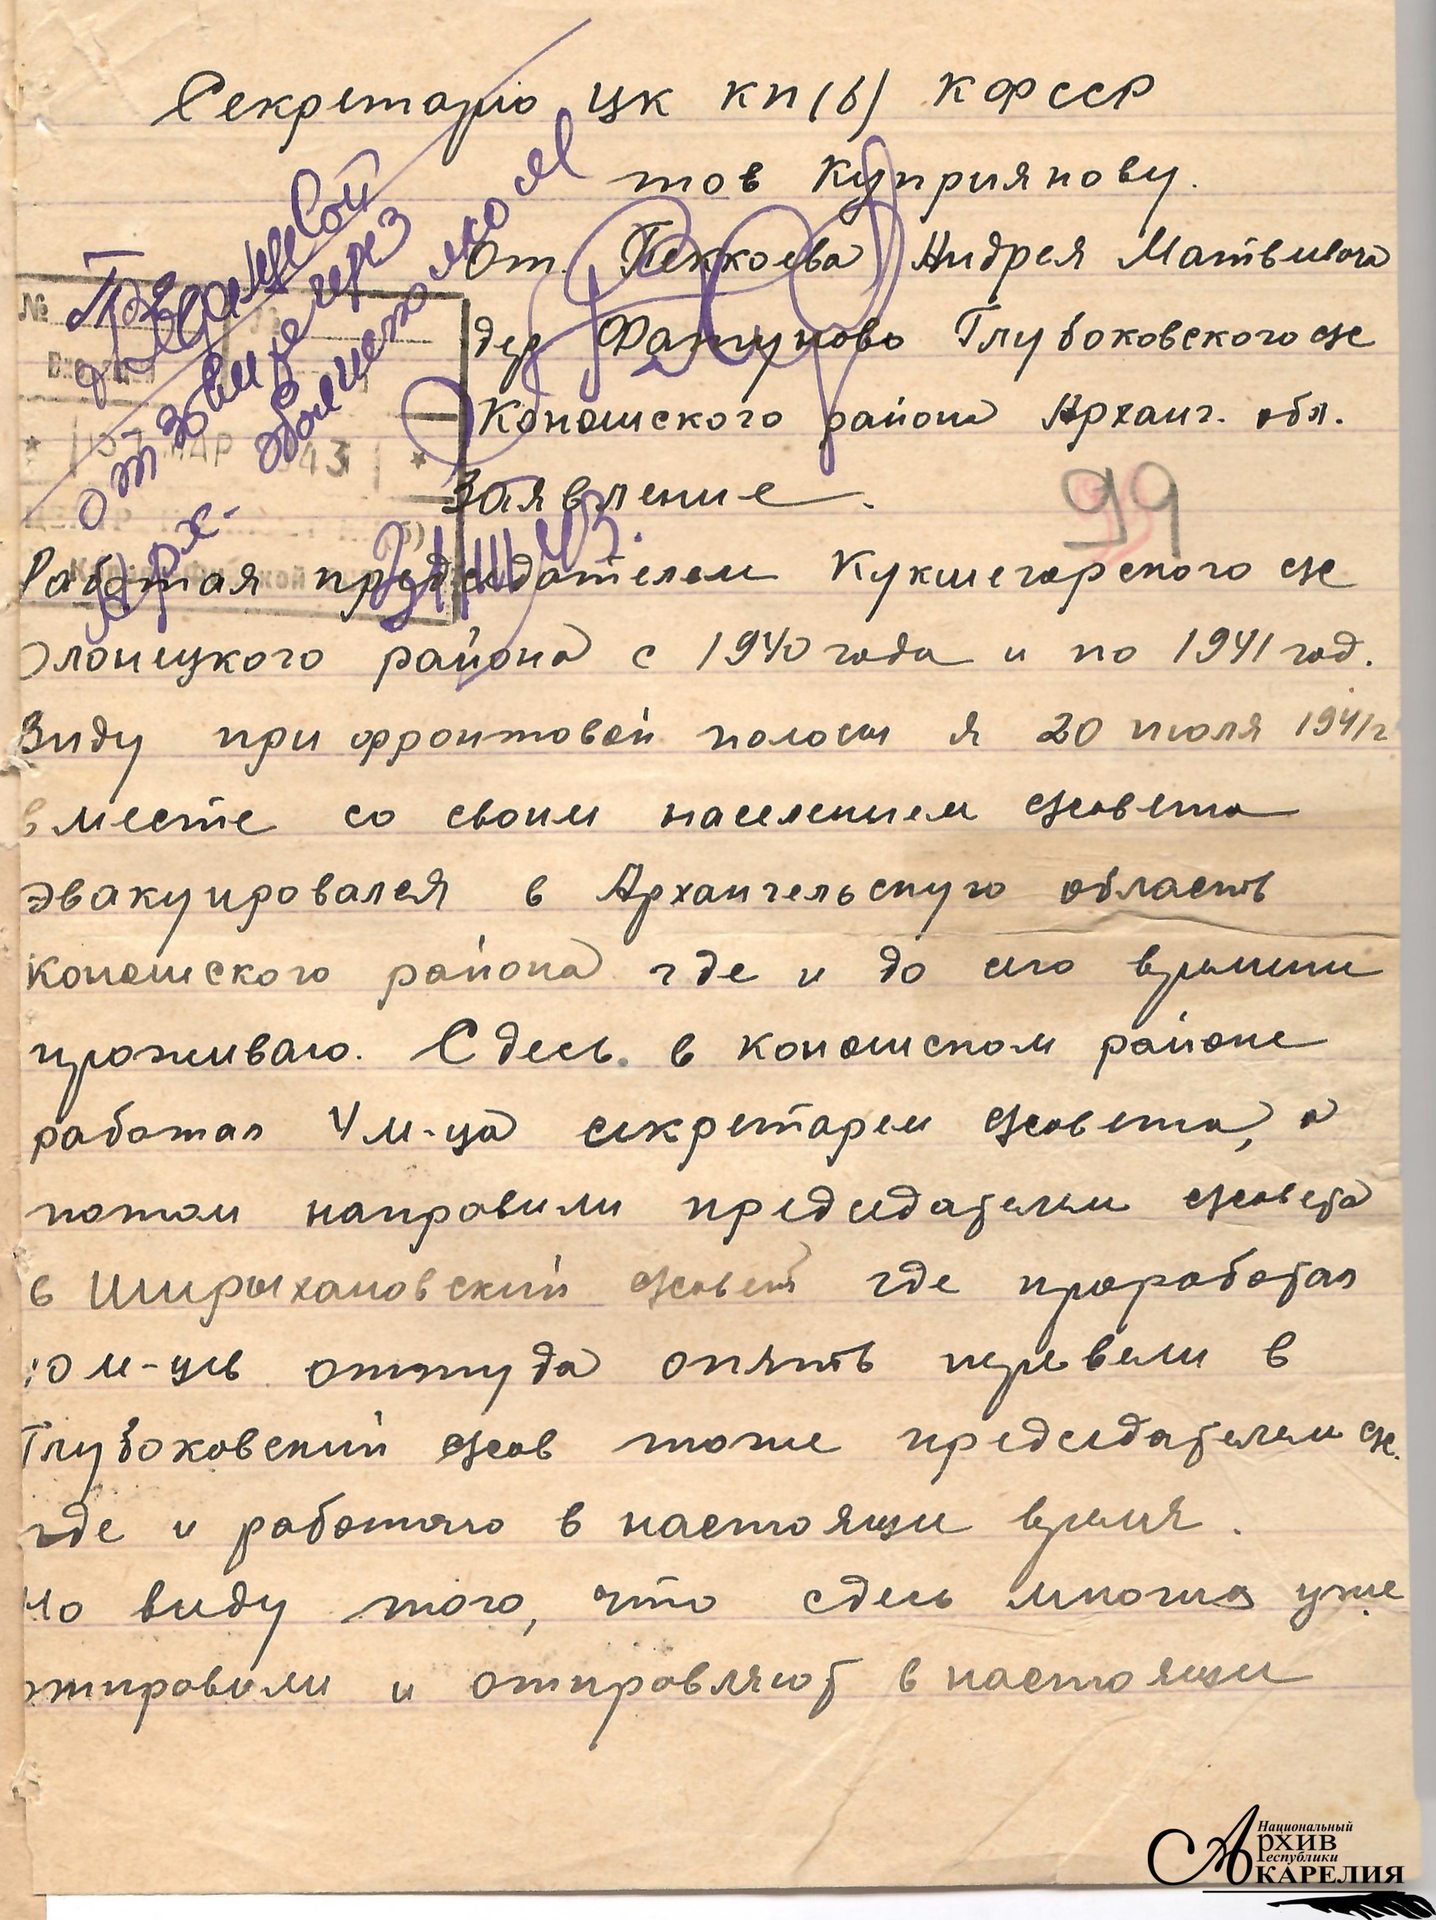 Секретарю ЦК КП(б) КФССР
тов Куприянову.
От Пеккоева Андрея Матвеивича
дер Фатуново Глубоковского с/с
Коношского района Арханг. обл.
Заявление.
99
Работая председателем Кукшегорского с/с
Олонецкого района с 1940 года и по 1941 год.
Виду при фронтовой полосы я 20 июля 1941 г
вместе со своим населением с/совета
эвакуировался в Архангельскую область
Коношского района где и до сего времени
проживаю. Сдесь в коношском районе
работал 4 м-ца секретарем с/совета, а
потом направили председателем с/совета
в Ширыхановский с/совет где проработал
10 м-цев оттуда опять перевели в
Глубоковский с/сов тоже председателем с/с.
где и работаю в настоящи время.
Но виду того, что сдесь многих уже
отправили и отправляют в настоящи
№
Входящ
07 МАР 1943
отзовите через
Арх. обком
3/III 43.
Национальный
Архив
Республики
Карелия